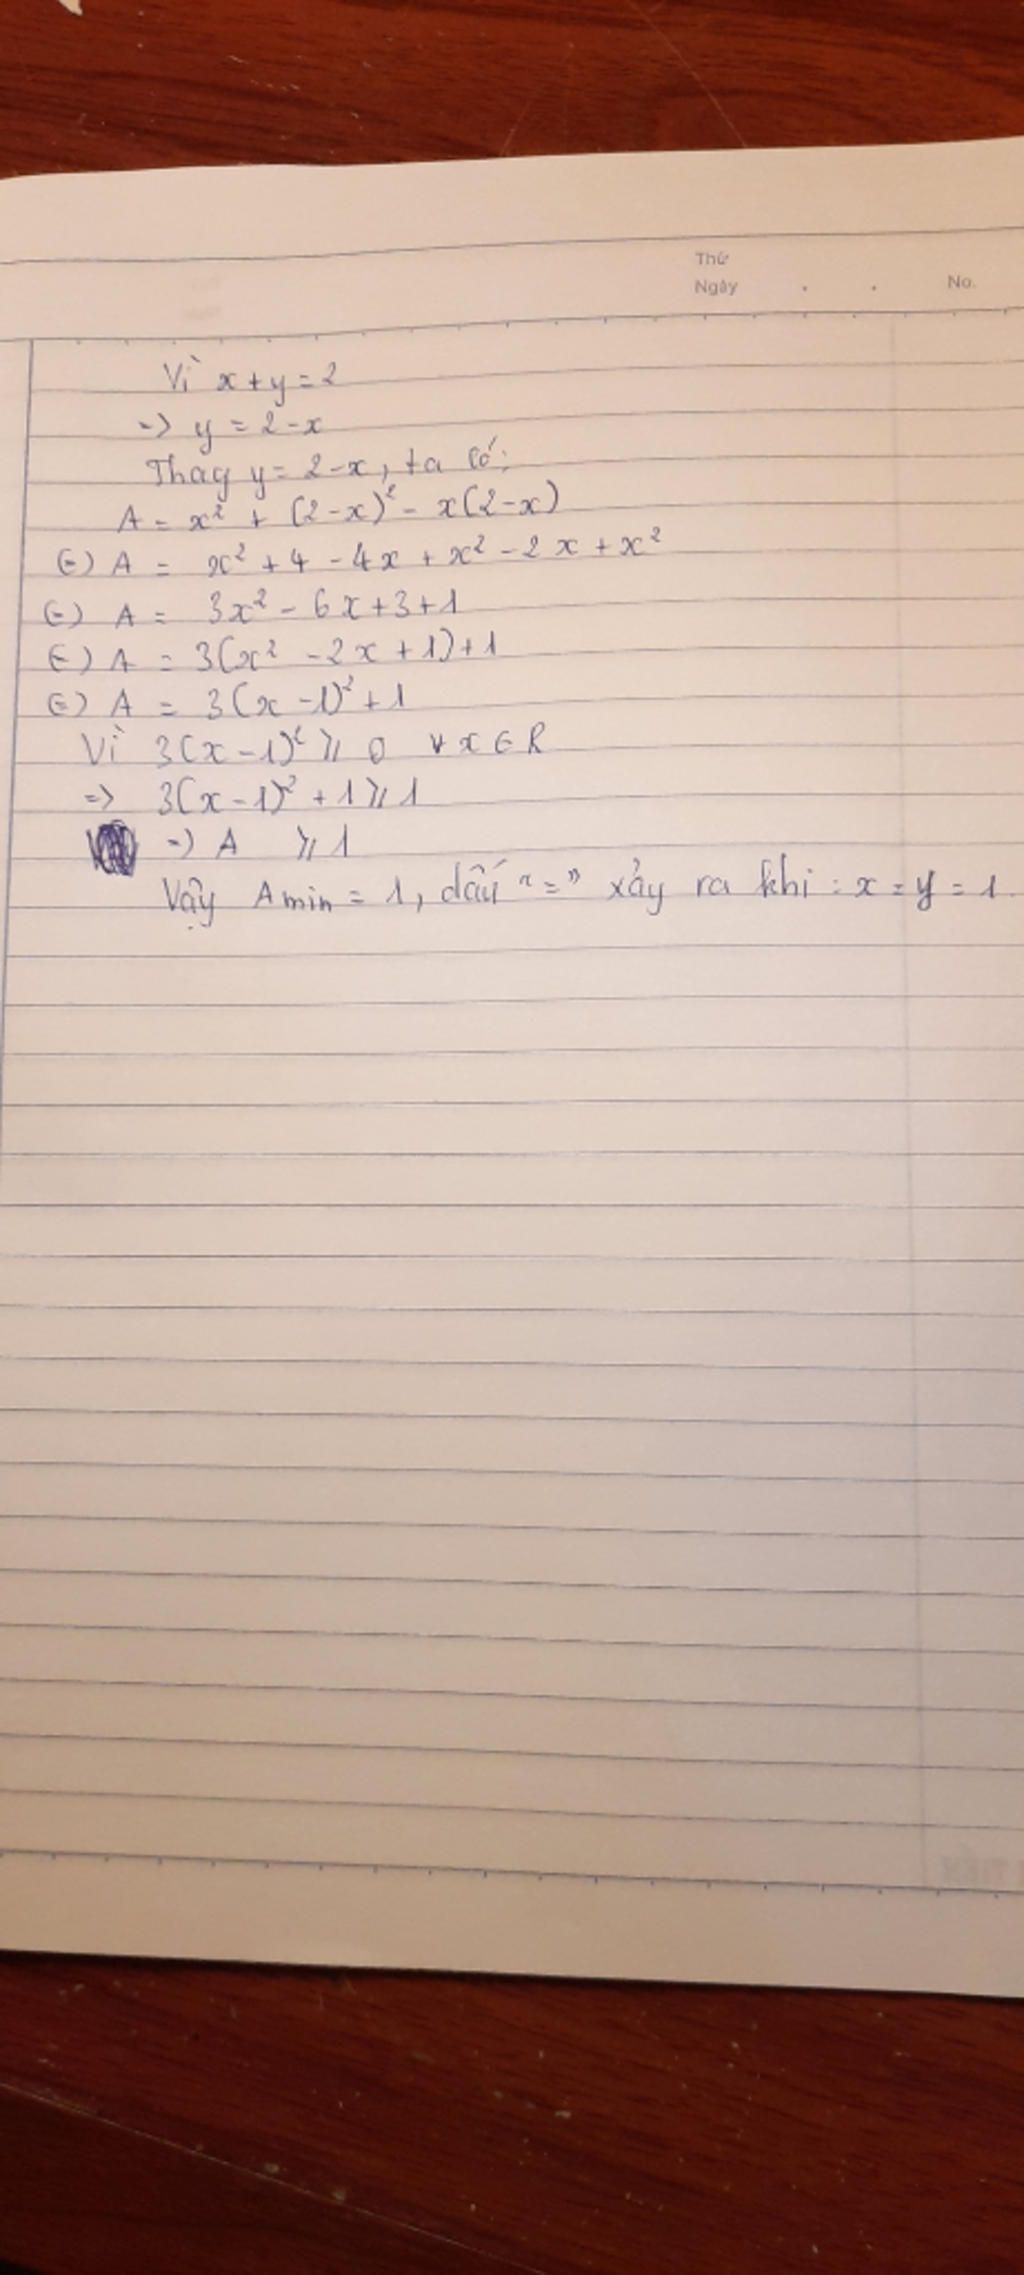 Thứ
Ngày . . No.
Vì x + y = 2
=> y = 2 - x
Thay y = 2 - x, ta có:
A = x² + (2 - x)² - x(2 - x)
(=) A = x² + 4 - 4x + x² - 2x + x²
(=) A = 3x² - 6x + 3 + 1
(=) A = 3(x² - 2x + 1) + 1
(=) A = 3(x - 1)² + 1
Vì 3(x - 1)² ⩾ 0 ∀ x ∈ R
=> 3(x - 1)² + 1 ⩾ 1
=> A ⩾ 1
Vậy A min = 1, dấu "=" xảy ra khi : x = y = 1.